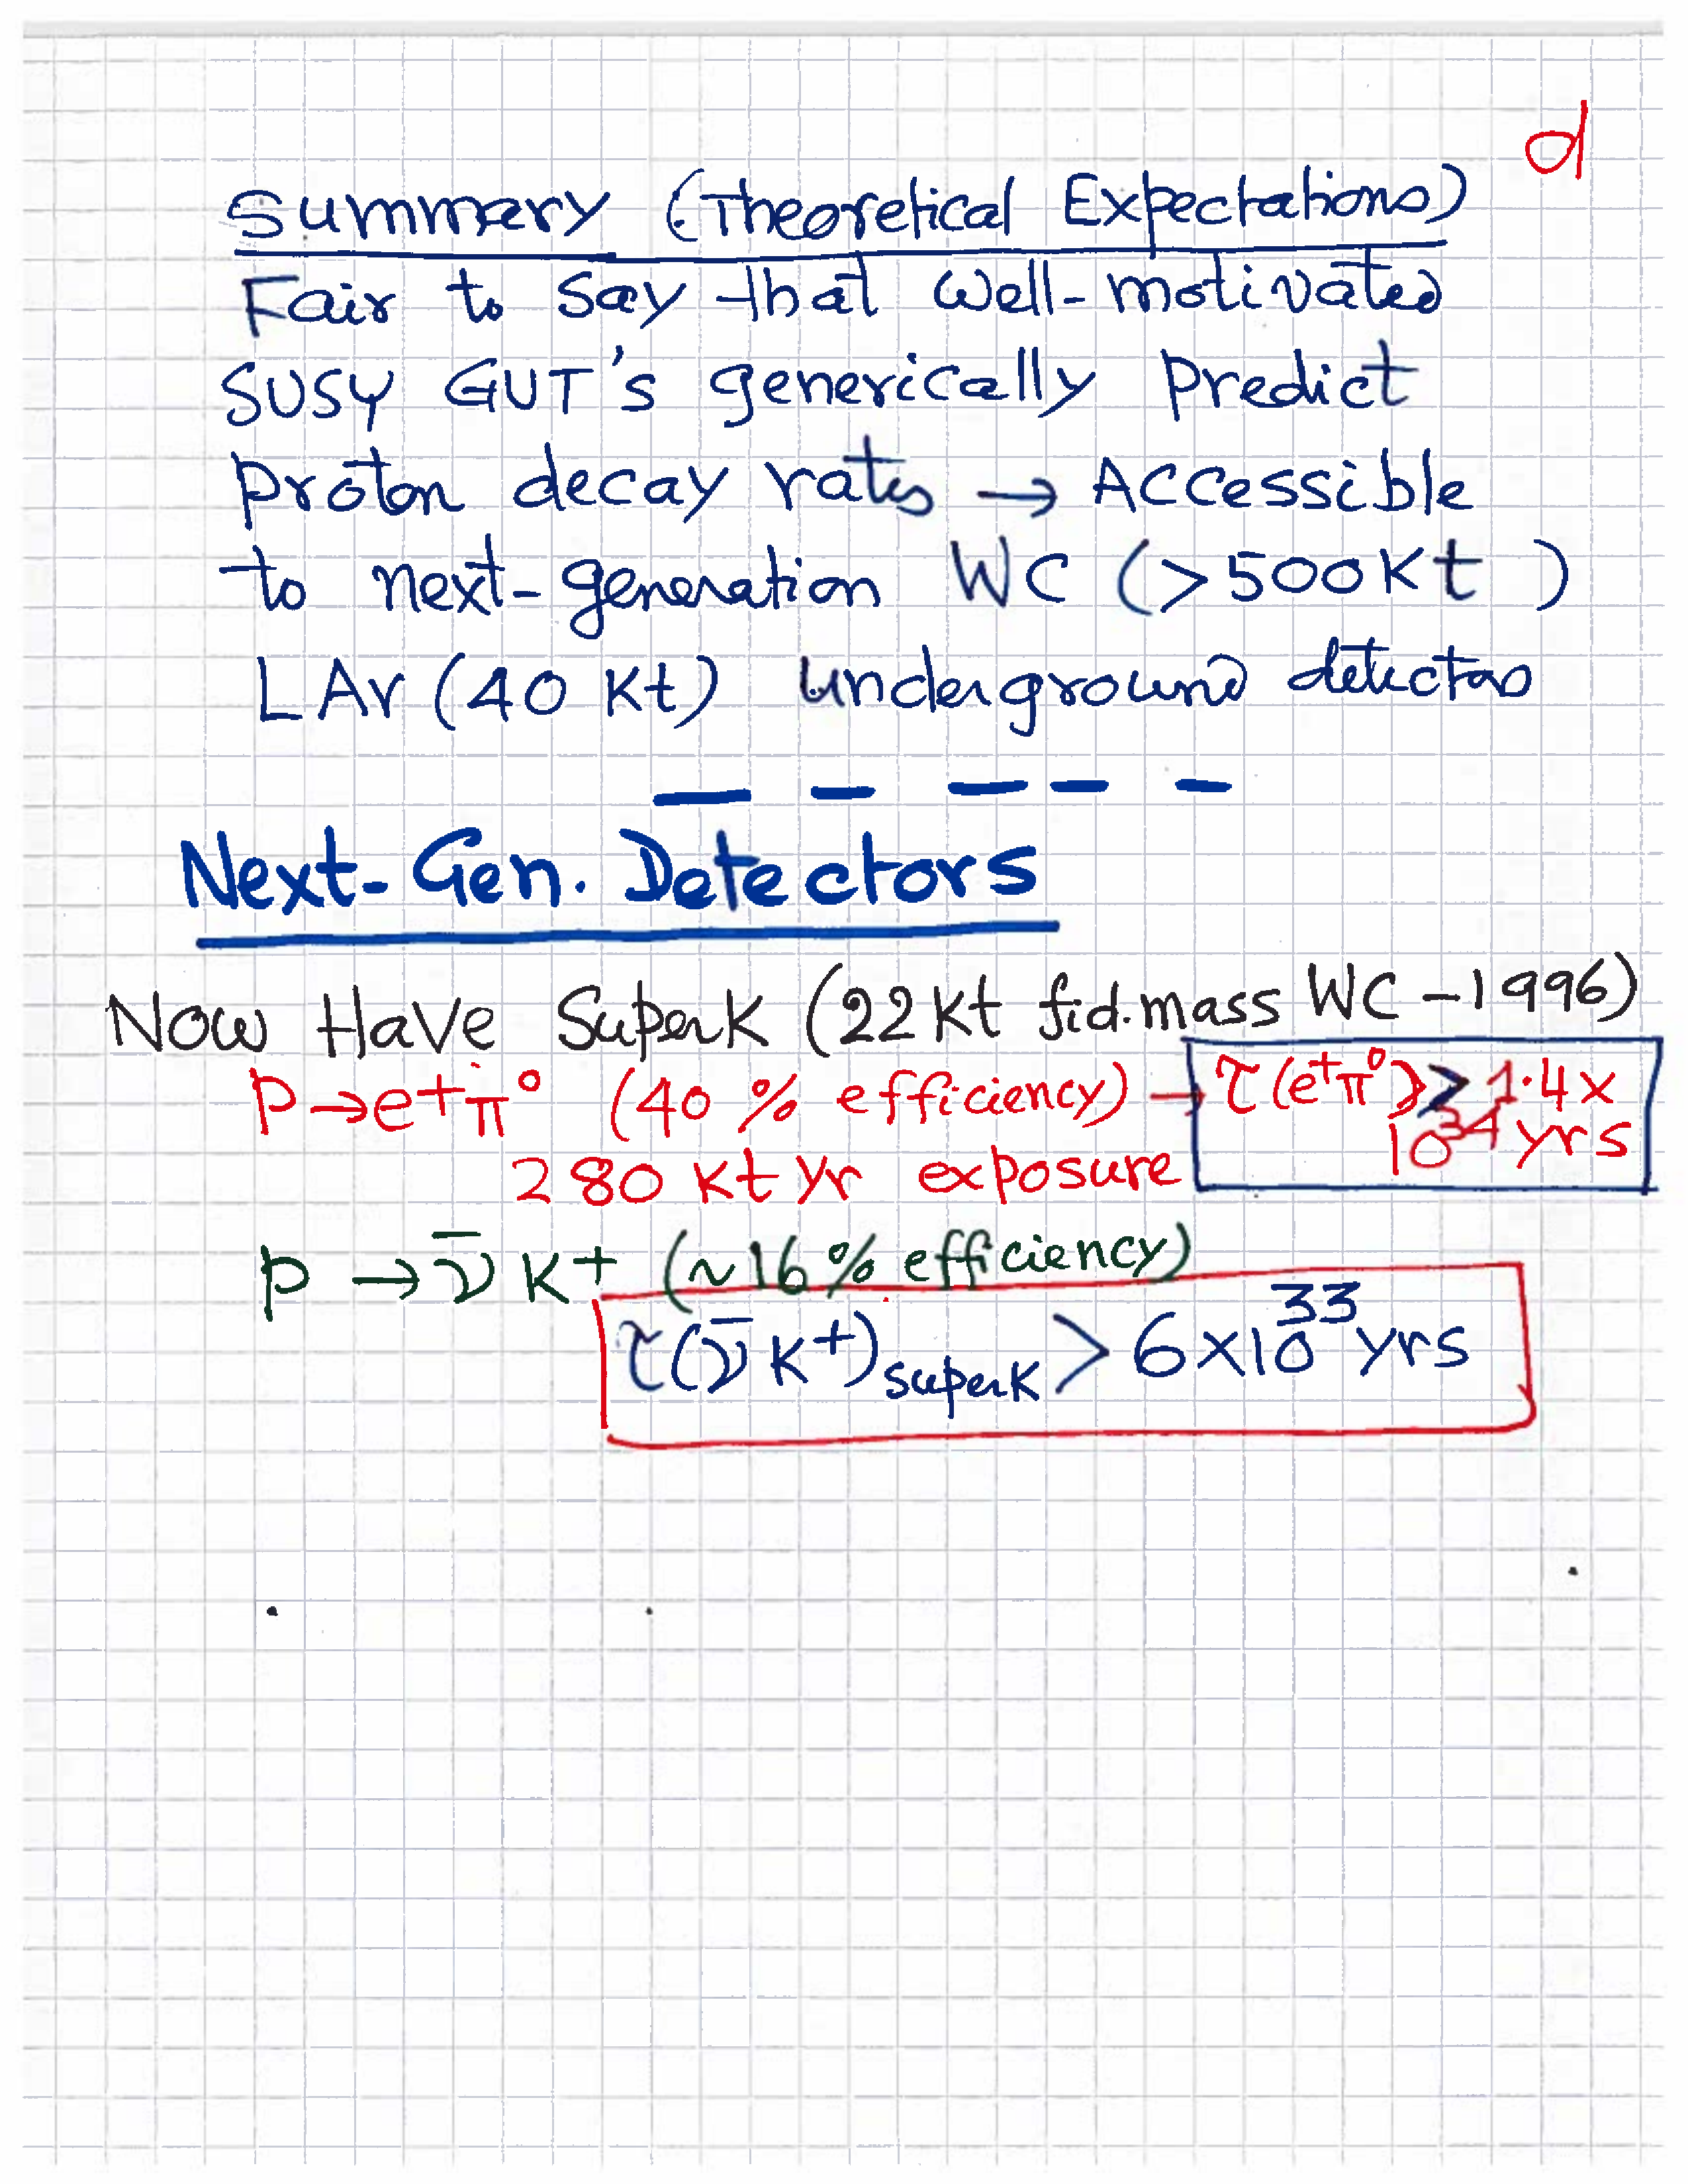 d
Summary (Theoretical Expectations)
Fair to say that well-motivated
SUSY GUT's generically predict
proton decay rates → Accessible
to next-generation WC (>500 Kt )
LAr (40 Kt) underground detectors
Next-Gen. Detectors
Now Have SuperK (22 Kt fid.mass WC - 1996)
P→e+π⁰ (40 % efficiency) → τ(e⁺π⁰) > 1.4 x
10³⁴ yrs
280 Kt yr exposure
p → ν̄ K+ (~16% efficiency)
τ(ν̄ K⁺) SuperK > 6x10³³ yrs